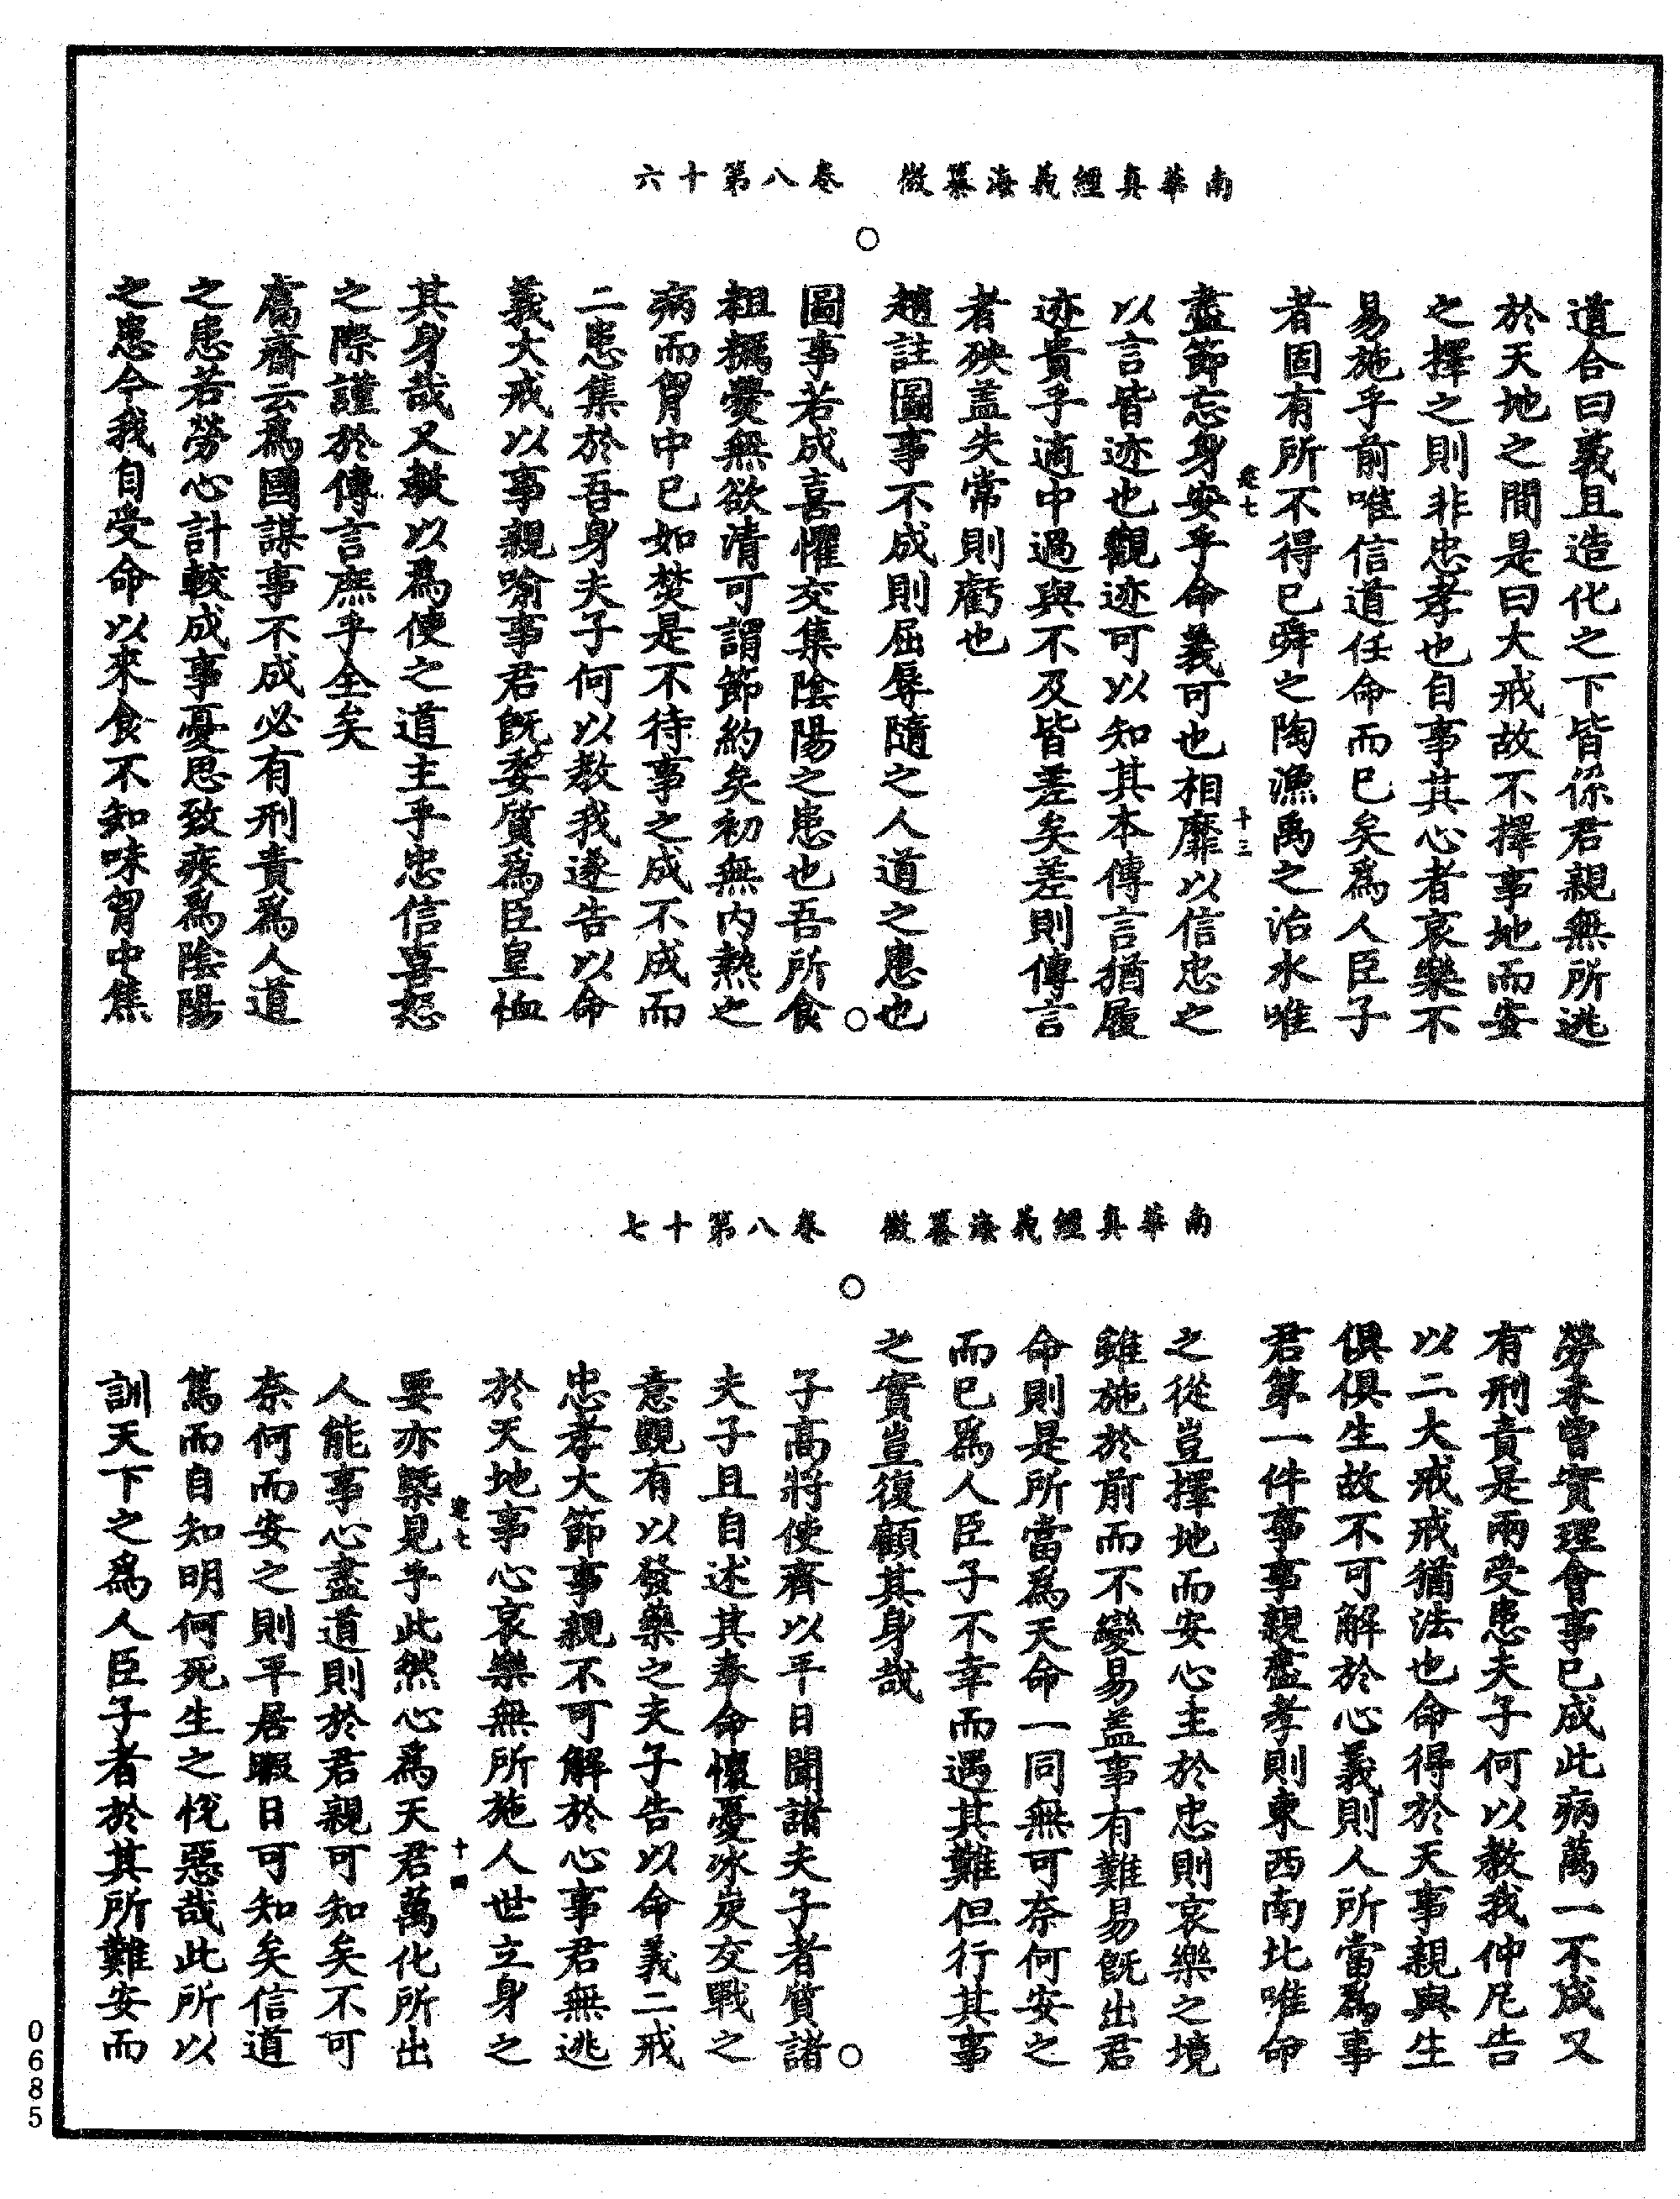 南華真經義海纂微　卷八第十六
道合曰義且造化之下皆係君親無所逃
於天地之間是曰大戒故不擇事地而安
之擇之則非忠孝也自事其心者哀樂不
易施乎前唯信道任命而已矣為人臣子
者固有所不得已舜之陶漁禹之治水唯
卷七　十三
盡節忘身安乎命義可也相靡以信忠之
以言皆迹也觀迹可以知其本傳言猶履
迹貴乎適中過與不及皆差矣差則傳言
者殃盖失常則虧也
趙註圖事不成則屈辱隨之人道之患也
圖事若成喜懼交集陰陽之患也吾所食
粗糲爨無欲清可謂節約矣初無內熱之
病而胷中已如焚是不待事之成不成而
二患集於吾身夫子何以教我遂告以命
義大戒以事親喻事君既委質為臣皇恤
其身哉又教以為使之道主乎忠信喜怒
之際謹於傳言庶乎全矣
鬳齋云為國謀事不成必有刑責為人道
之患若勞心計較成事憂思致疾為陰陽
之患今我自受命以來食不知味胷中焦
南華真經義海纂微　卷八第十七
勞未曾實理會事已成此病萬一不成又
有刑責是兩受患夫子何以教我仲尼告
以二大戒戒猶法也命得於天事親與生
俱俱生故不可解於心義則人所當為事
君第一件事事親盡孝則東西南北唯命
之從豈擇地而安心主於忠則哀樂之境
雖施於前而不變易盖事有難易既出君
命則是所當為天命一同無可奈何安之
而已為人臣子不幸而遇其難但行其事
之實豈復顧其身哉
子高將使齊以平日聞諸夫子者質諸
夫子且自述其奉命懷憂冰炭交戰之
意覬有以發藥之夫子告以命義二戒
忠孝大節事親不可解於心事君無逃
於天地事心哀樂無所施人世立身之
卷七　十四
要亦槩見乎此然心為天君萬化所出
人能事心盡道則於君親可知矣不可
奈何而安之則平居暇日可知矣信道
篤而自知明何死生之悅惡哉此所以
訓天下之為人臣子者於其所難安而
0685